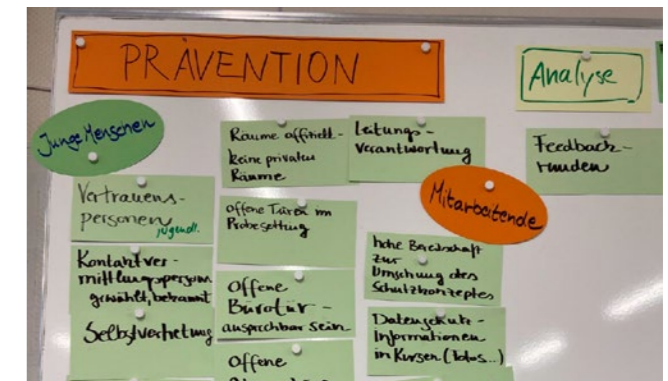 PRÄVENTION
Analyse
Junge Menschen
Vertrauens-
personen
jugendl.
Kontaktver-
mittlungsperson
gewählt, bekannt
Selbstvertretung
Räume offiziell -
keine privaten
Räume
offene Türen im
Probesetting
Offene
Bürotür -
ansprechbar sein
Offene
Leitungs-
verantwortung
Mitarbeitende
hohe Bereitschaft
zur
Umsetzung des
Schutzkonzeptes
Datenschutz -
Informationen
in Kursen (Fotos...)
Feedback-
runden